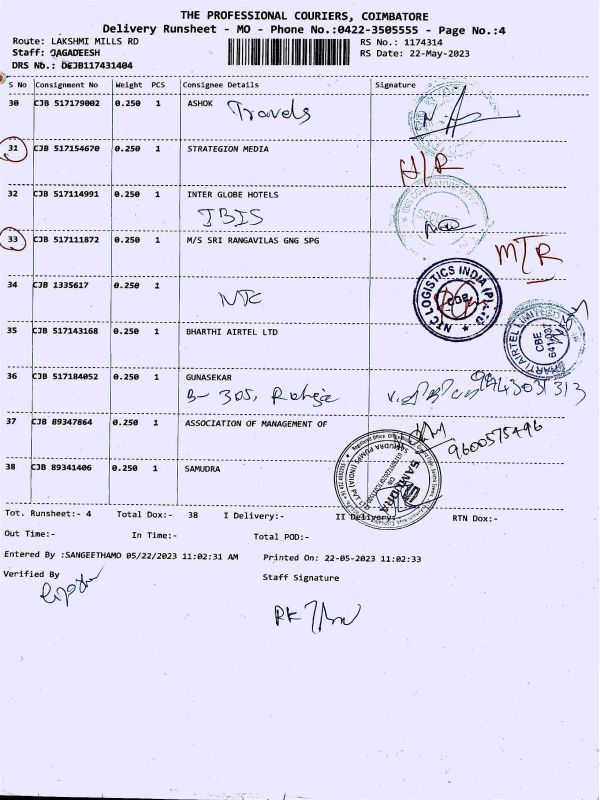 THE PROFESSIONAL COURIERS, COIMBATORE
Delivery Runsheet - MO - Phone No.:0422-3505555 - Page No.:4
Route: LAKSHMI MILLS RD
RS No.: 1174314
Staff: JAGADEESH
RS Date: 22-May-2023
DRS Nb.: DCJB117431404
S No Consignment No Weight PCS Consignee Details Signature
30 CJB 517179002 0.250 1 ASHOK Travels
31 CJB 517154670 0.250 1 STRATEGION MEDIA
N/R
32 CJB 517114991 0.250 1 INTER GLOBE HOTELS
IBIS
33 CJB 517111872 0.250 1 M/S SRI RANGAVILAS GNG SPG
MTR
34 CJB 1335617 0.250 1
NTC
NTC LOGISTICS INDIA (P) Ltd
CJB
35 CJB 517143168 0.250 1 BHARTHI AIRTEL LTD
BHARTI AIRTEL LIMITED
CBE
36 CJB 517184052 0.250 1 GUNASEKAR
B- 305, Raheja
37 CJB 89347864 0.250 1 ASSOCIATION OF MANAGEMENT OF
9600575496
38 CJB 89341406 0.250 1 SAMUDRA
SAMUDRA
Tot. Runsheet:- 4 Total Dox:- 38 I Delivery:- II Delivery:- RTN Dox:-
Out Time:- In Time:- Total POD:-
Entered By :SANGEETHAMO 05/22/2023 11:02:31 AM Printed On: 22-05-2023 11:02:33
Verified By Staff Signature